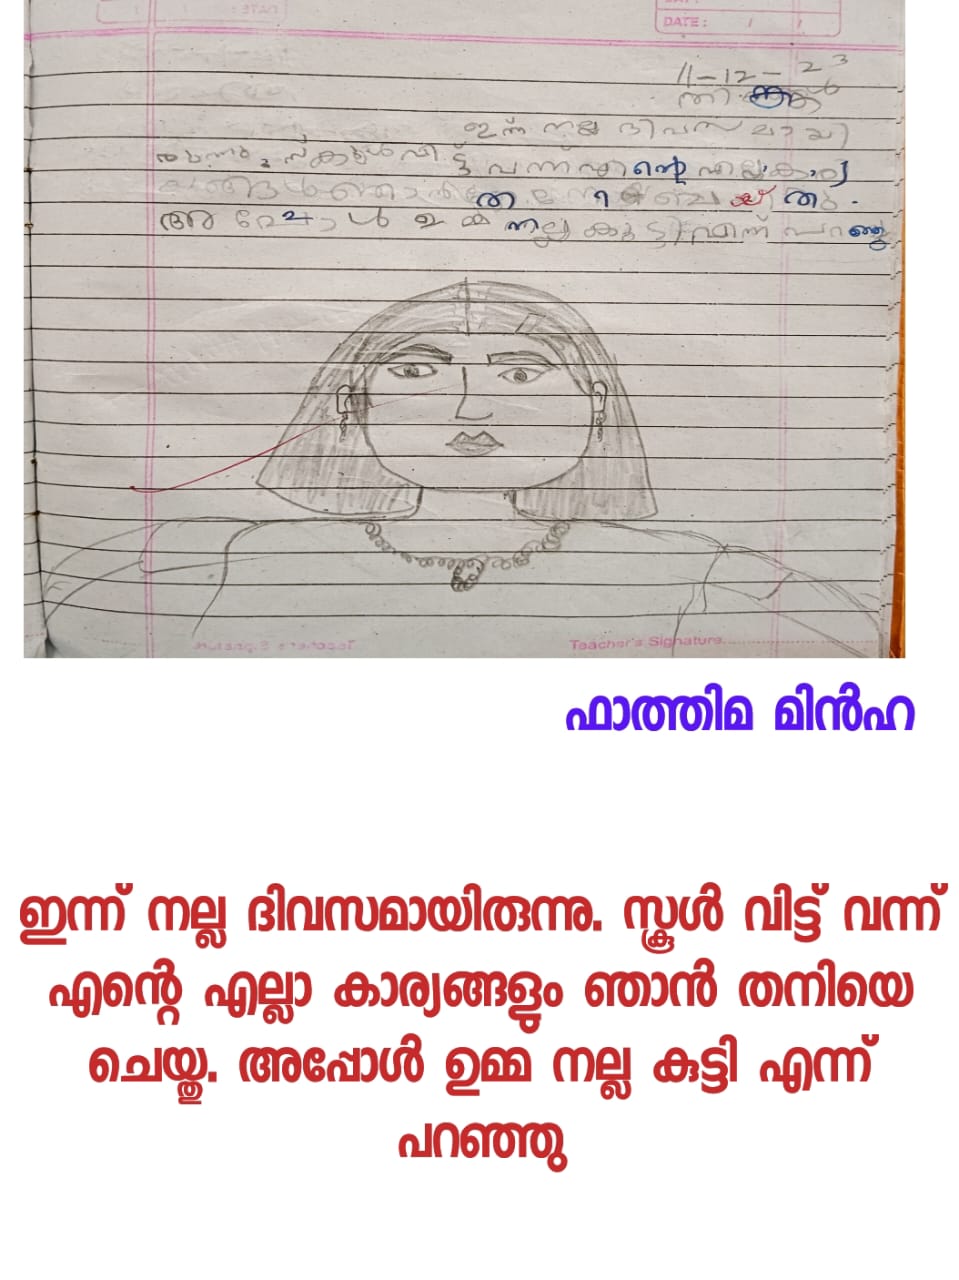 DATE :
11-12-23
തിങ്കൾ
ഇന്ന് നല്ല ദിവസമായി
രുന്നു. സ്കൂൾ വിട്ട് വന്ന് എന്റെ എല്ലാ കാര്യ
ങ്ങൾ ഞാൻ തനിയെ ചെയ്തു.
അപ്പോൾ ഉമ്മ നല്ല കുട്ടി എന്ന് പറഞ്ഞു
Teacher's Signature
ഫാത്തിമ മിൻഹ
ഇന്ന് നല്ല ദിവസമായിരുന്നു. സ്കൂൾ വിട്ട് വന്ന്
എന്റെ എല്ലാ കാര്യങ്ങളും ഞാൻ തനിയെ
ചെയ്തു. അപ്പോൾ ഉമ്മ നല്ല കുട്ടി എന്ന്
പറഞ്ഞു